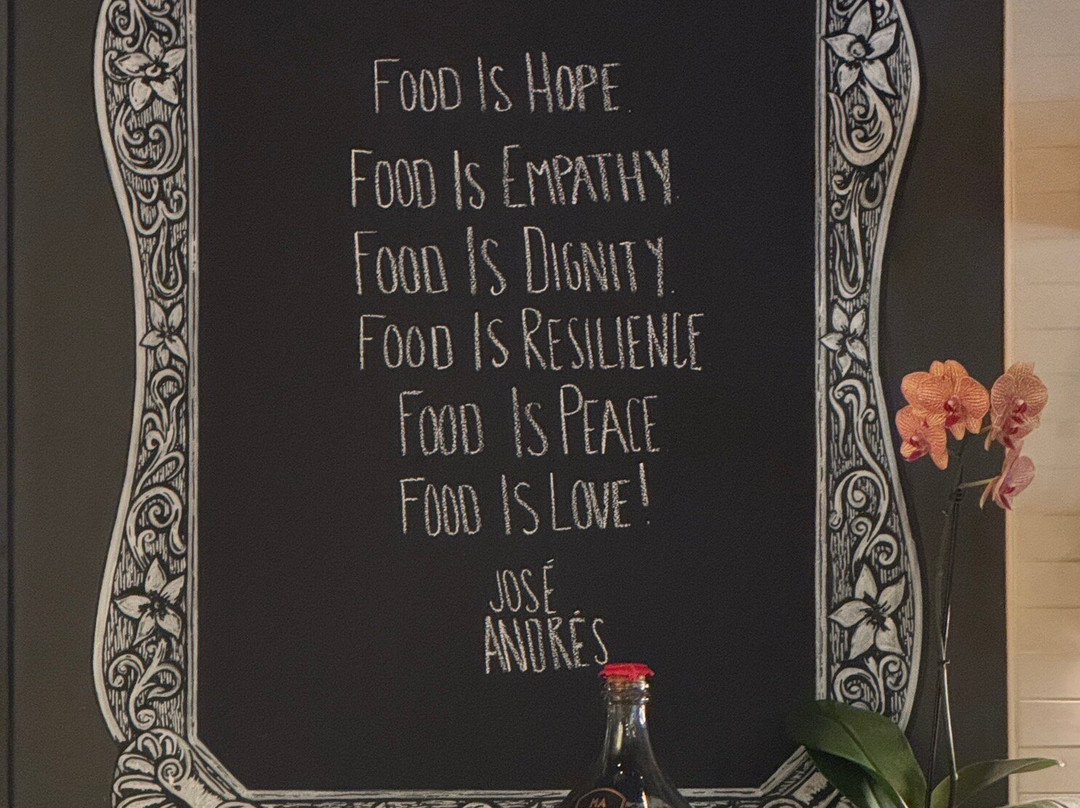 Food Is Hope.
Food Is Empathy.
Food Is Dignity.
Food Is Resilience
Food Is Peace
Food Is Love!
José
Andrés